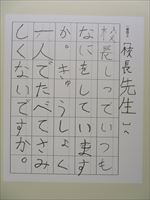 「校長先生」へ
校長しつでいつも
なにをしています
か。きゅうしょく
一人でたべてさみ
しくないですか。